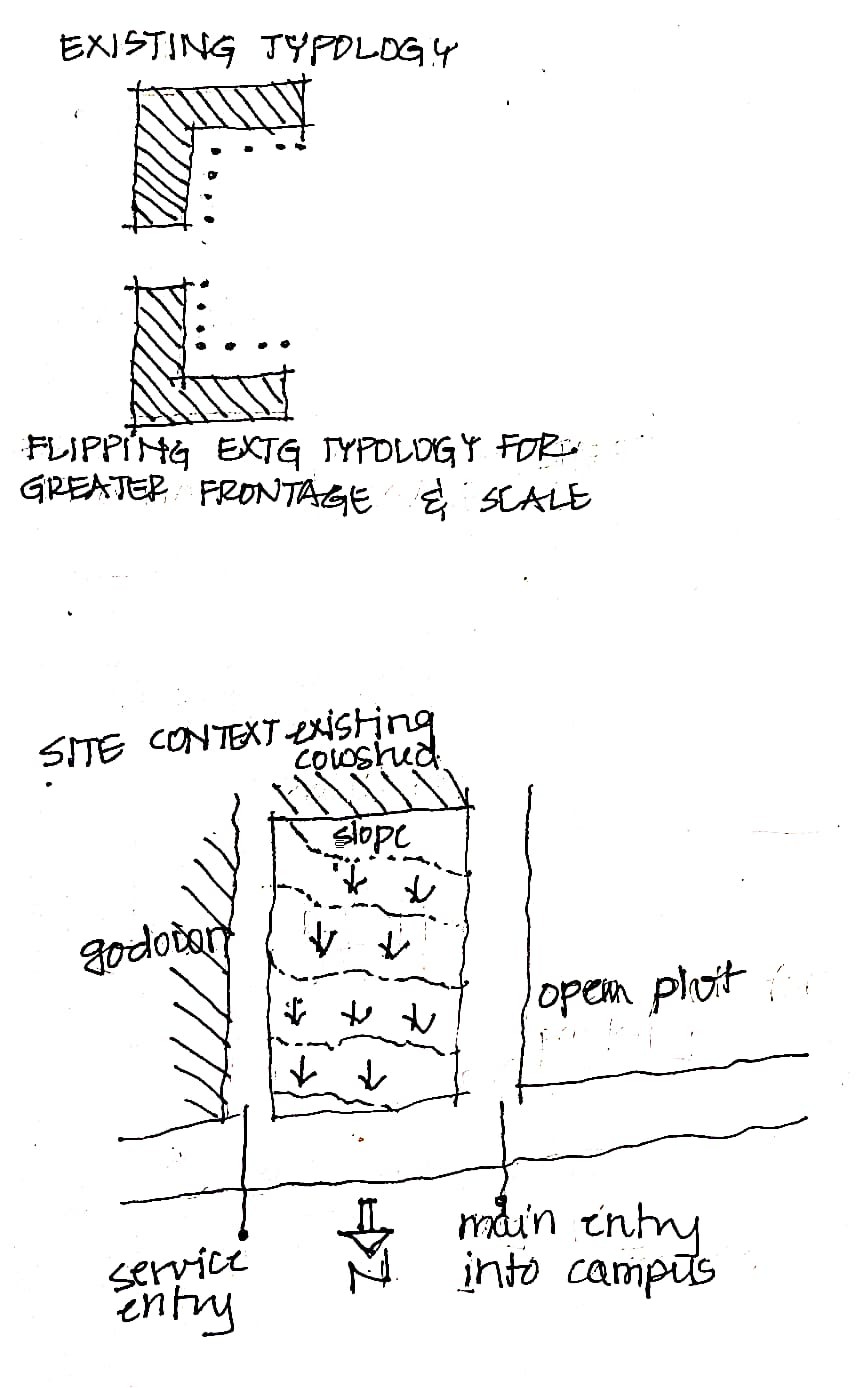 EXISTING TYPOLOGY
FLIPPING EXTG TYPOLOGY FOR
GREATER FRONTAGE & SCALE
SITE CONTEXT existing
cowshed
slope
godown
open plot
service
entry
N
main entry
into campus